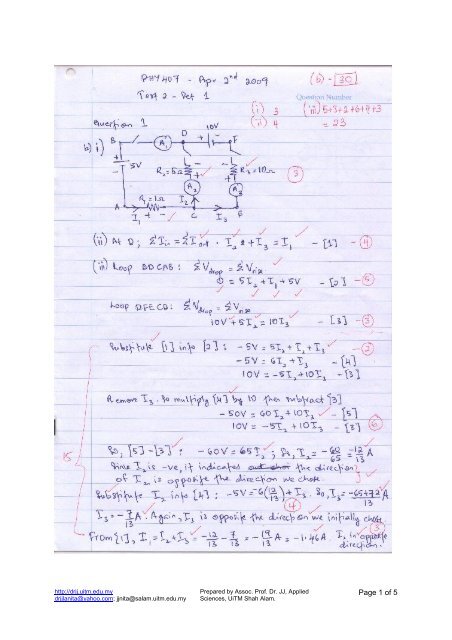 PHY407 - Apr 2nd 2009 (b) - [30]
Test 2 - Set 1 Question Number
(i) 3 (iii) 5+3+2+6+4+3
Question 1 (ii) 4 = 23
b) i) B A1 D 10V F
+ - 5V R2=5Ω - + - + R3=10Ω (3)
A2 A3
R1=1Ω I2
A I1 + - C I3 E
(ii) At D; ΣIin = ΣIout. I2 + I3 = I1 - [1] - (4)
(iii) Loop BDCAB: ΣVdrop = ΣVrise
0 = 5I2 + I1 + 5V - [2] - (5)
Loop DFECD: ΣVdrop = ΣVrise
10V + 5I2 = 10I3 - [3] - (3)
Substitute [1] into [2]: -5V = 5I2 + I2 + I3 - (2)
-5V = 6I2 + I3 - [4]
10V = -5I2 + 10I3 - [3]
Remove I3. So multiply [4] by 10 then subtract [3]
-50V = 60I2 + 10I3 - [5]
10V = -5I2 + 10I3 - [3] (6)
15 So, [5]-[3]: -60V = 65I2; So, I2 = -60/65 = -12/13 A
Since I2 is -ve, it indicates the direction
of I2 is opposite the direction we chose.
Substitute I2 into [4]: -5V = -6(12/13) + I3. So, I3 = -65+72/13 A
(4)
I3 = -7/13 A. Again, I3 is opposite the direction we initially chose
(3)
From [1], I1 = I2 + I3 = -12/13 - 7/13 = -19/13 A = -1.46A. I1 in opposite
direction.
http://drjj.uitm.edu.my Prepared by Assoc. Prof. Dr. JJ, Applied Page 1 of 5
drjjlanita@yahoo.com; jjnita@salam.uitm.edu.my Sciences, UiTM Shah Alam.